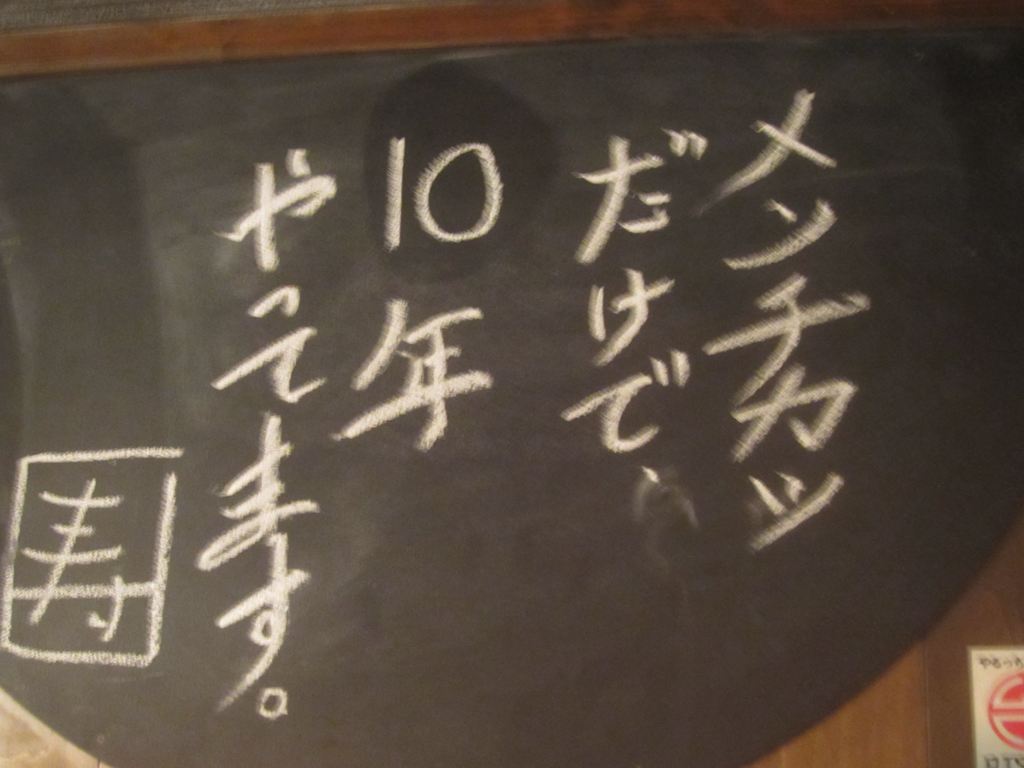 メンチカツ
だけで、
10年
やってます。
寿